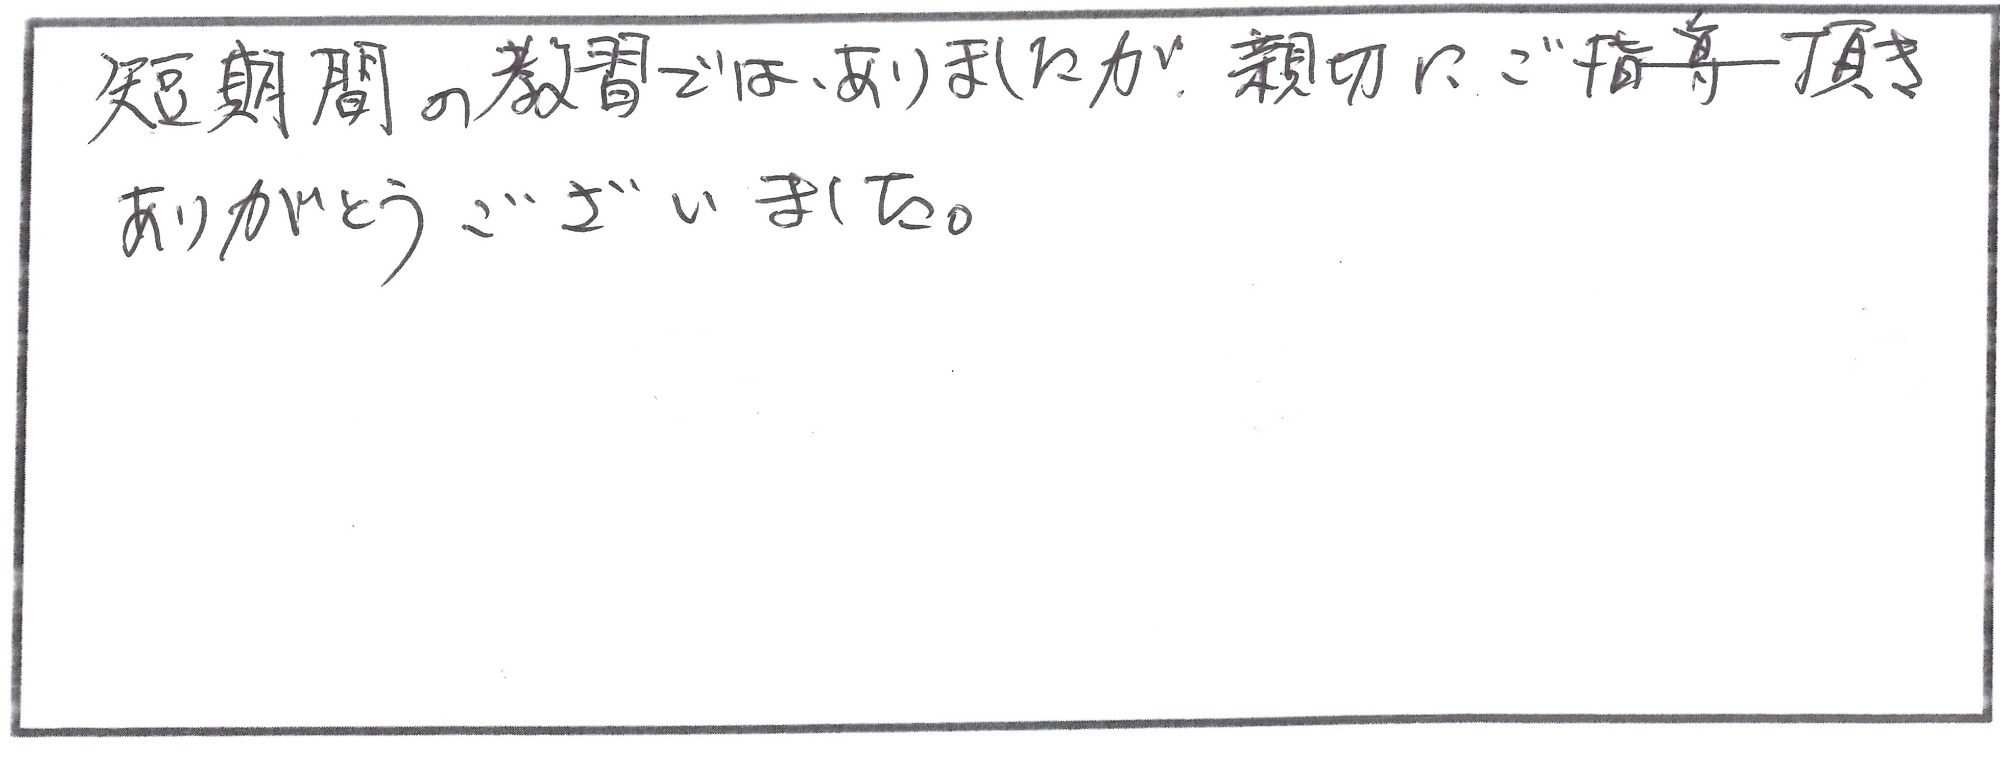 短期間の教習では、ありましたが、親切にご指導頂き
ありがとうございました。